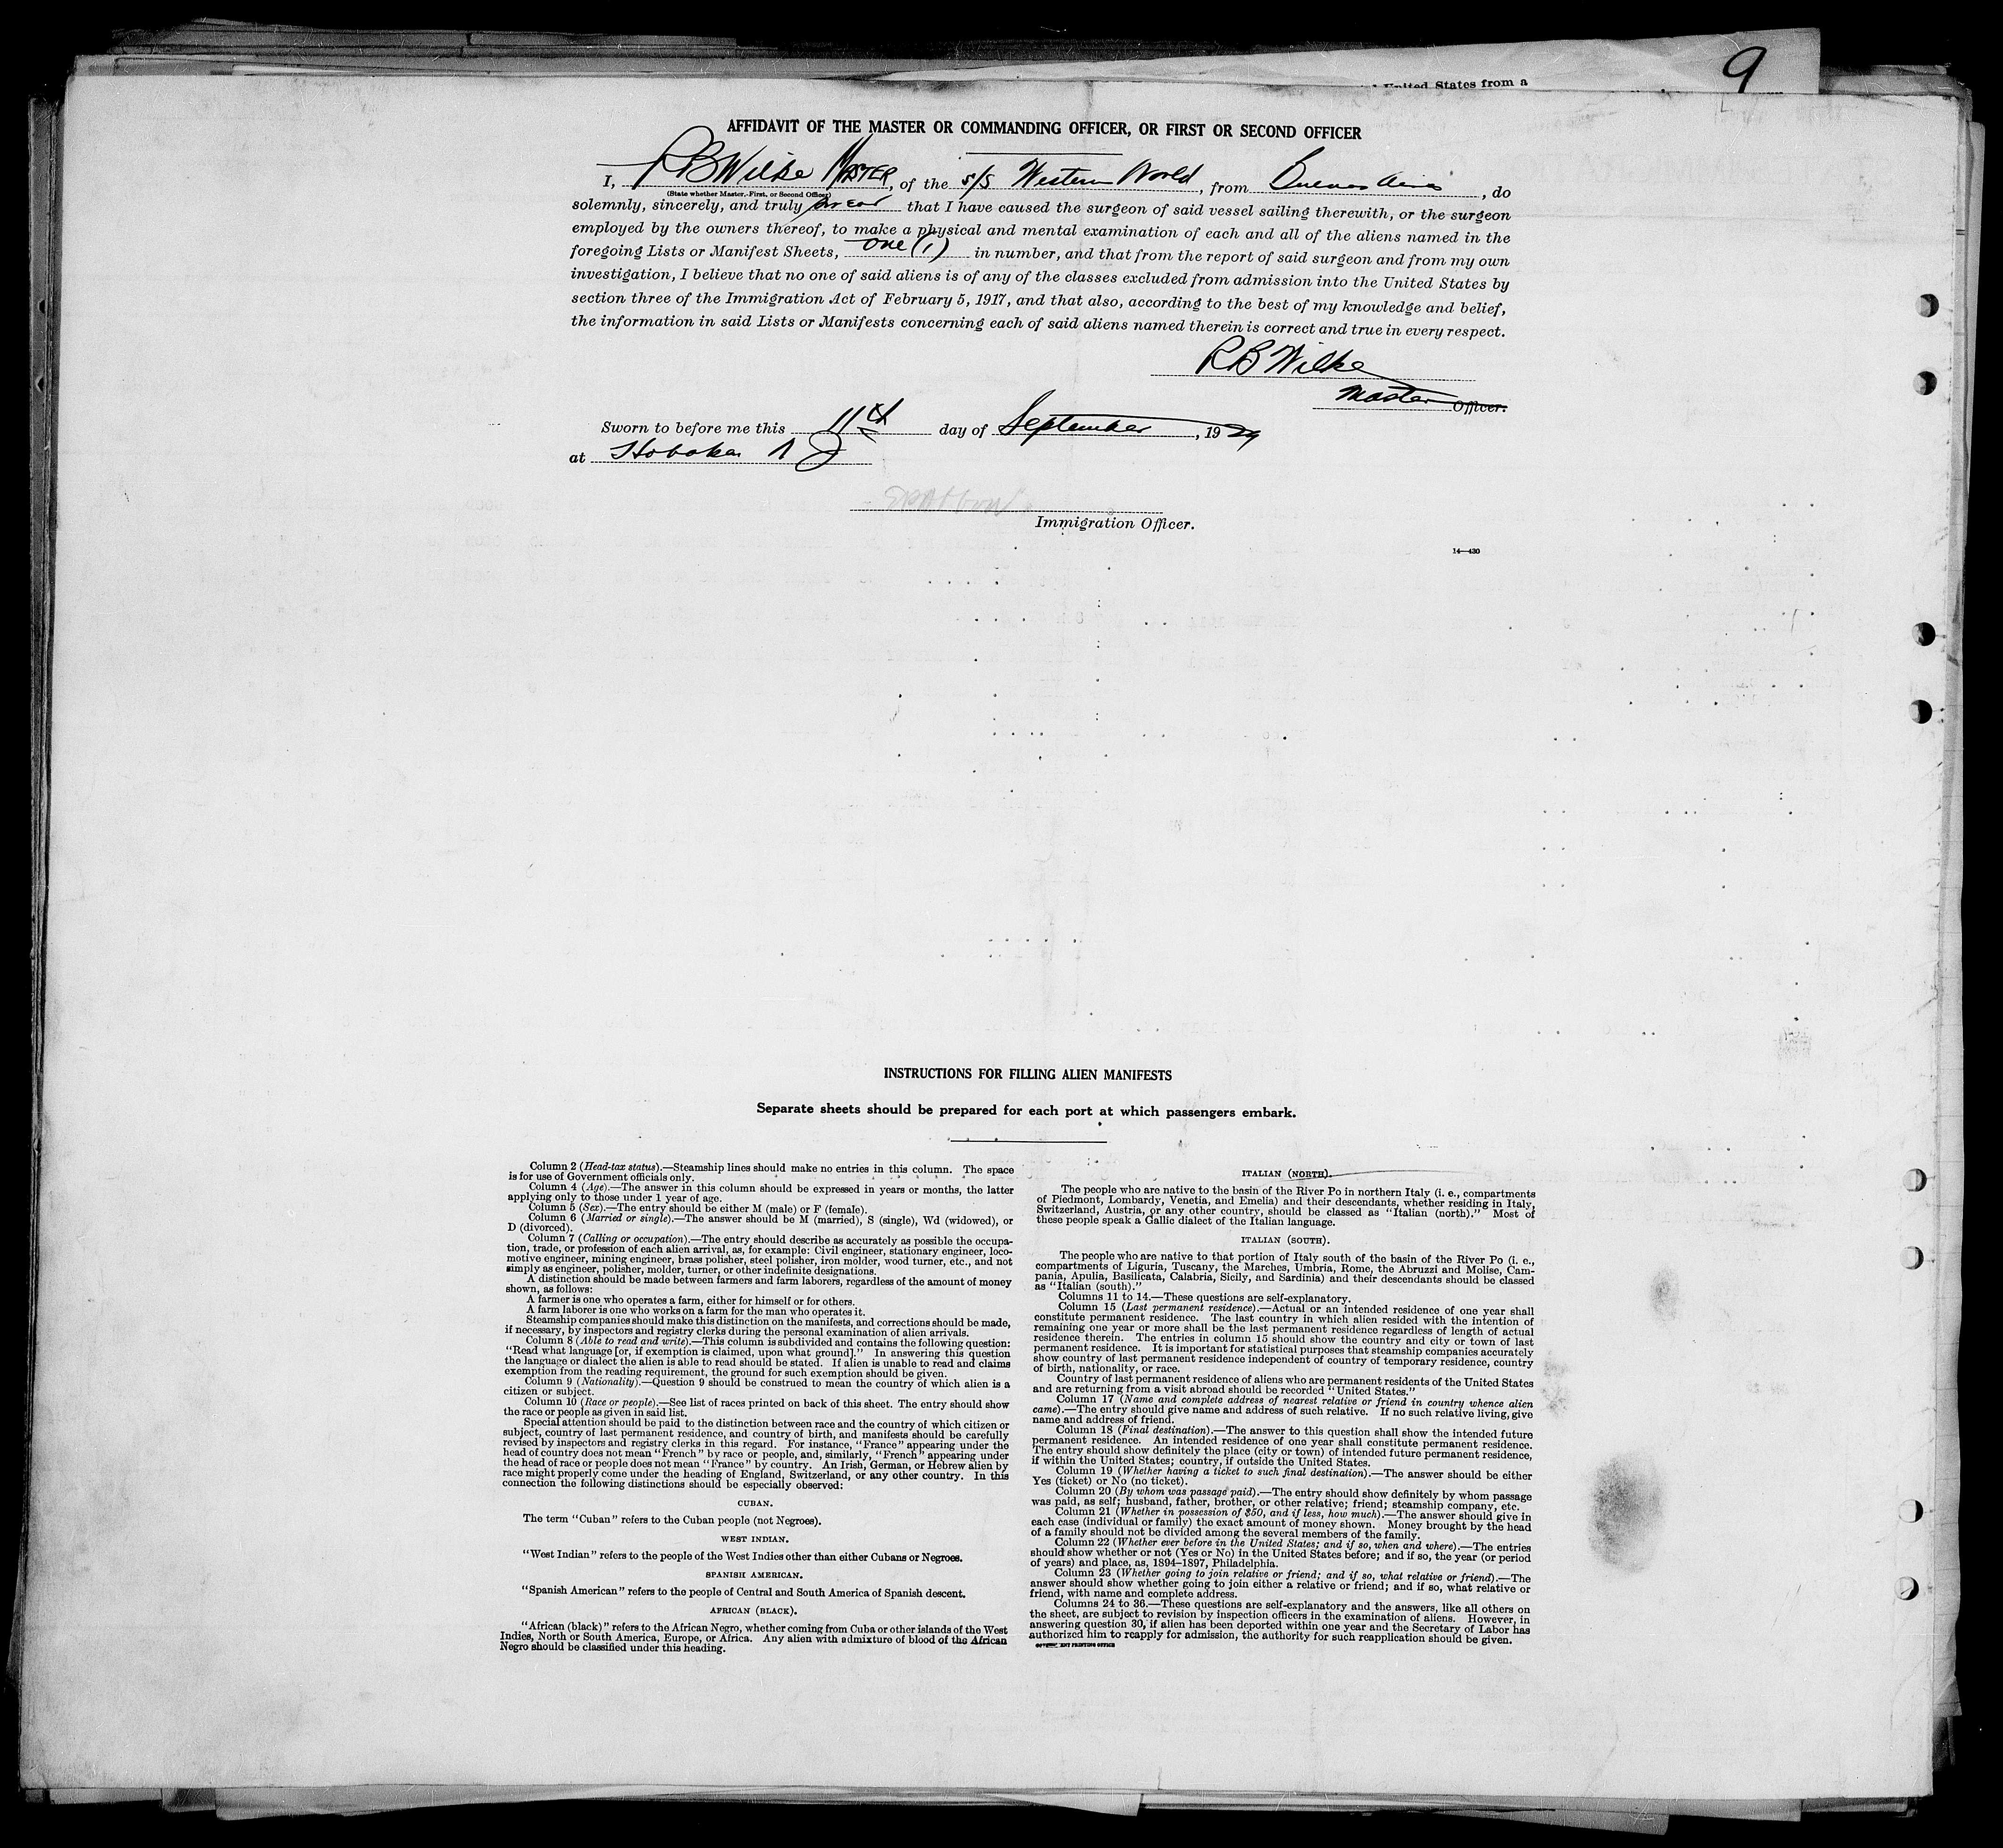 United States from a
9
AFFIDAVIT OF THE MASTER OR COMMANDING OFFICER, OR FIRST OR SECOND OFFICER
I, R B Wilke MASTER, of the S/S Western World, from Buenos Aires, do
(State whether Master, First, or Second Officer)
solemnly, sincerely, and truly swear that I have caused the surgeon of said vessel sailing therewith, or the surgeon
employed by the owners thereof, to make a physical and mental examination of each and all of the aliens named in the
foregoing Lists or Manifest Sheets, one (1) in number, and that from the report of said surgeon and from my own
investigation, I believe that no one of said aliens is of any of the classes excluded from admission into the United States by
section three of the Immigration Act of February 5, 1917, and that also, according to the best of my knowledge and belief,
the information in said Lists or Manifests concerning each of said aliens named therein is correct and true in every respect.
R B Wilke
Master Officer.
Sworn to before me this 11th day of September, 1929
at Hoboken N J
Immigration Officer.
14—430
INSTRUCTIONS FOR FILLING ALIEN MANIFESTS
Separate sheets should be prepared for each port at which passengers embark.
Column 2 (Head-tax status).—Steamship lines should make no entries in this column. The space
is for use of Government officials only.
Column 4 (Age).—The answer in this column should be expressed in years or months, the latter
applying only to those under 1 year of age.
Column 5 (Sex).—The entry should be either M (male) or F (female).
Column 6 (Married or single).—The answer should be M (married), S (single), Wd (widowed), or
D (divorced).
Column 7 (Calling or occupation).—The entry should describe as accurately as possible the occupa-
tion, trade, or profession of each alien arrival, as, for example: Civil engineer, stationary engineer, loco-
motive engineer, mining engineer, brass polisher, steel polisher, iron molder, wood turner, etc., and not
simply as engineer, polisher, molder, turner, or other indefinite designations.
A distinction should be made between farmers and farm laborers, regardless of the amount of money
shown, as follows:
A farmer is one who operates a farm, either for himself or for others.
A farm laborer is one who works on a farm for the man who operates it.
Steamship companies should make this distinction on the manifests, and corrections should be made,
if necessary, by inspectors and registry clerks during the personal examination of alien arrivals.
Column 8 (Able to read and write).—This column is subdivided and contains the following question:
"Read what language [or, if exemption is claimed, upon what ground]." In answering this question
the language or dialect the alien is able to read should be stated. If alien is unable to read and claims
exemption from the reading requirement, the ground for such exemption should be given.
Column 9 (Nationality).—Question 9 should be construed to mean the country of which alien is a
citizen or subject.
Column 10 (Race or people).—See list of races printed on back of this sheet. The entry should show
the race or people as given in said list.
Special attention should be paid to the distinction between race and the country of which citizen or
subject, country of last permanent residence, and country of birth, and manifests should be carefully
revised by inspectors and registry clerks in this regard. For instance, "France" appearing under the
head of country does not mean "French" by race or people, and, similarly, "French" appearing under
the head of race or people does not mean "France" by country. An Irish, German, or Hebrew alien by
race might properly come under the heading of England, Switzerland, or any other country. In this
connection the following distinctions should be especially observed:
CUBAN.
The term "Cuban" refers to the Cuban people (not Negroes).
WEST INDIAN.
"West Indian" refers to the people of the West Indies other than either Cubans or Negroes.
SPANISH AMERICAN.
"Spanish American" refers to the people of Central and South America of Spanish descent.
AFRICAN (BLACK).
"African (black)" refers to the African Negro, whether coming from Cuba or other islands of the West
Indies, North or South America, Europe, or Africa. Any alien with admixture of blood of the African
Negro should be classified under this heading.
ITALIAN (NORTH).
The people who are native to the basin of the River Po in northern Italy (i. e., compartments
of Piedmont, Lombardy, Venetia, and Emelia) and their descendants, whether residing in Italy,
Switzerland, Austria, or any other country, should be classed as "Italian (north)." Most of
these people speak a Gallic dialect of the Italian language.
ITALIAN (SOUTH).
The people who are native to that portion of Italy south of the basin of the River Po (i. e.,
compartments of Liguria, Tuscany, the Marches, Umbria, Rome, the Abruzzi and Molise, Cam-
pania, Apulia, Basilicata, Calabria, Sicily, and Sardinia) and their descendants should be classed
as "Italian (south)."
Columns 11 to 14.—These questions are self-explanatory.
Column 15 (Last permanent residence).—Actual or an intended residence of one year shall
constitute permanent residence. The last country in which alien resided with the intention of
remaining one year or more shall be the last permanent residence regardless of length of actual
residence therein. The entries in column 15 should show the country and city or town of last
permanent residence. It is important for statistical purposes that steamship companies accurately
show country of last permanent residence independent of country of temporary residence, country
of birth, nationality, or race.
Country of last permanent residence of aliens who are permanent residents of the United States
and are returning from a visit abroad should be recorded "United States."
Column 17 (Name and complete address of nearest relative or friend in country whence alien
came).—The entry should give name and address of such relative. If no such relative living, give
name and address of friend.
Column 18 (Final destination).—The answer to this question shall show the intended future
permanent residence. An intended residence of one year shall constitute permanent residence.
The entry should show definitely the place (city or town) of intended future permanent residence,
if within the United States; country, if outside the United States.
Column 19 (Whether having a ticket to such final destination).—The answer should be either
Yes (ticket) or No (no ticket).
Column 20 (By whom was passage paid).—The entry should show definitely by whom passage
was paid, as self; husband, father, brother, or other relative; friend; steamship company, etc.
Column 21 (Whether in possession of $50, and if less, how much).—The answer should give in
each case (individual or family) the exact amount of money shown. Money brought by the head
of a family should not be divided among the several members of the family.
Column 22 (Whether ever before in the United States; and if so, when and where).—The entries
should show whether or not (Yes or No) in the United States before; and if so, the year (or period
of years) and place, as, 1894-1897, Philadelphia.
Column 23 (Whether going to join relative or friend; and if so, what relative or friend).—The
answer should show whether going to join either a relative or friend; and if so, what relative or
friend, with name and complete address.
Columns 24 to 36.—These questions are self-explanatory and the answers, like all others on
the sheet, are subject to revision by inspection officers in the examination of aliens. However, in
answering question 30, if alien has been deported within one year and the Secretary of Labor has
authorized him to reapply for admission, the authority for such reapplication should be given.
GOVERNMENT PRINTING OFFICE